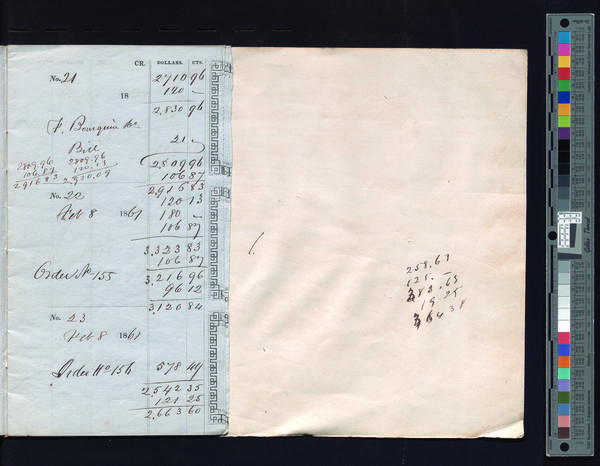 CR. DOLLARS. CTS.
No. 21 2710 96
18 120 –
2,830 96
F. Bourquin &c
Bill 21 –
2809.96 2809.96 2809 96
106.87 120.13 106 87
2916 83 2,930.09 2,916 83
No. 22 120 13
Feb 8 1861 180 –
106 87
3,323 83
106 87
Order No 155 3,216 96
96 12
3,120 84
No. 23
Feb 8 1861
Order No 156 578 49
2,542 35
121 25
2,663 60
258.61
125. –
383.65
19 25
364 38